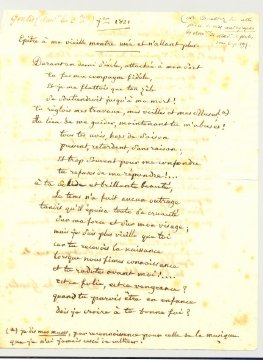 7bre 1821
Epitre à ma vieille montre usée et n'allant plus.
Durant un demi siècle, attachée à mon sort
tu fus ma compagne fidèle,
et je me flattois que ton zèle
Se soutiendroit jusqu'à ma mort!
tu réglois mes travaux, mes veilles et mes muses (*)
Au lieu de me guider, maintenant tu m'abuses!
tous tes avis, hors de Saison
pressent, retardent, sans raison;
Et trop Souvent pour me confondre
tu refuses de me répondre!...
à ta et brillante beauté,
Le tems n'a fait aucun outrage
tandis qu'il épuise toute Sa cruauté
Sur ma force et Sur mon visage;
mais je Suis plus vieille que toi
car tu recevois la naissance
lorsque nous fimes connoissance
et tu radotes avant moi!...
est-ce folie, est-ce vengeance?
quand tu parois être en enfance
dois je croire à ta bonne foi?
(*) je dis mes muses, par reconnoissance pour celle de la musique
que je n'ai jamais cessé de cultiver.